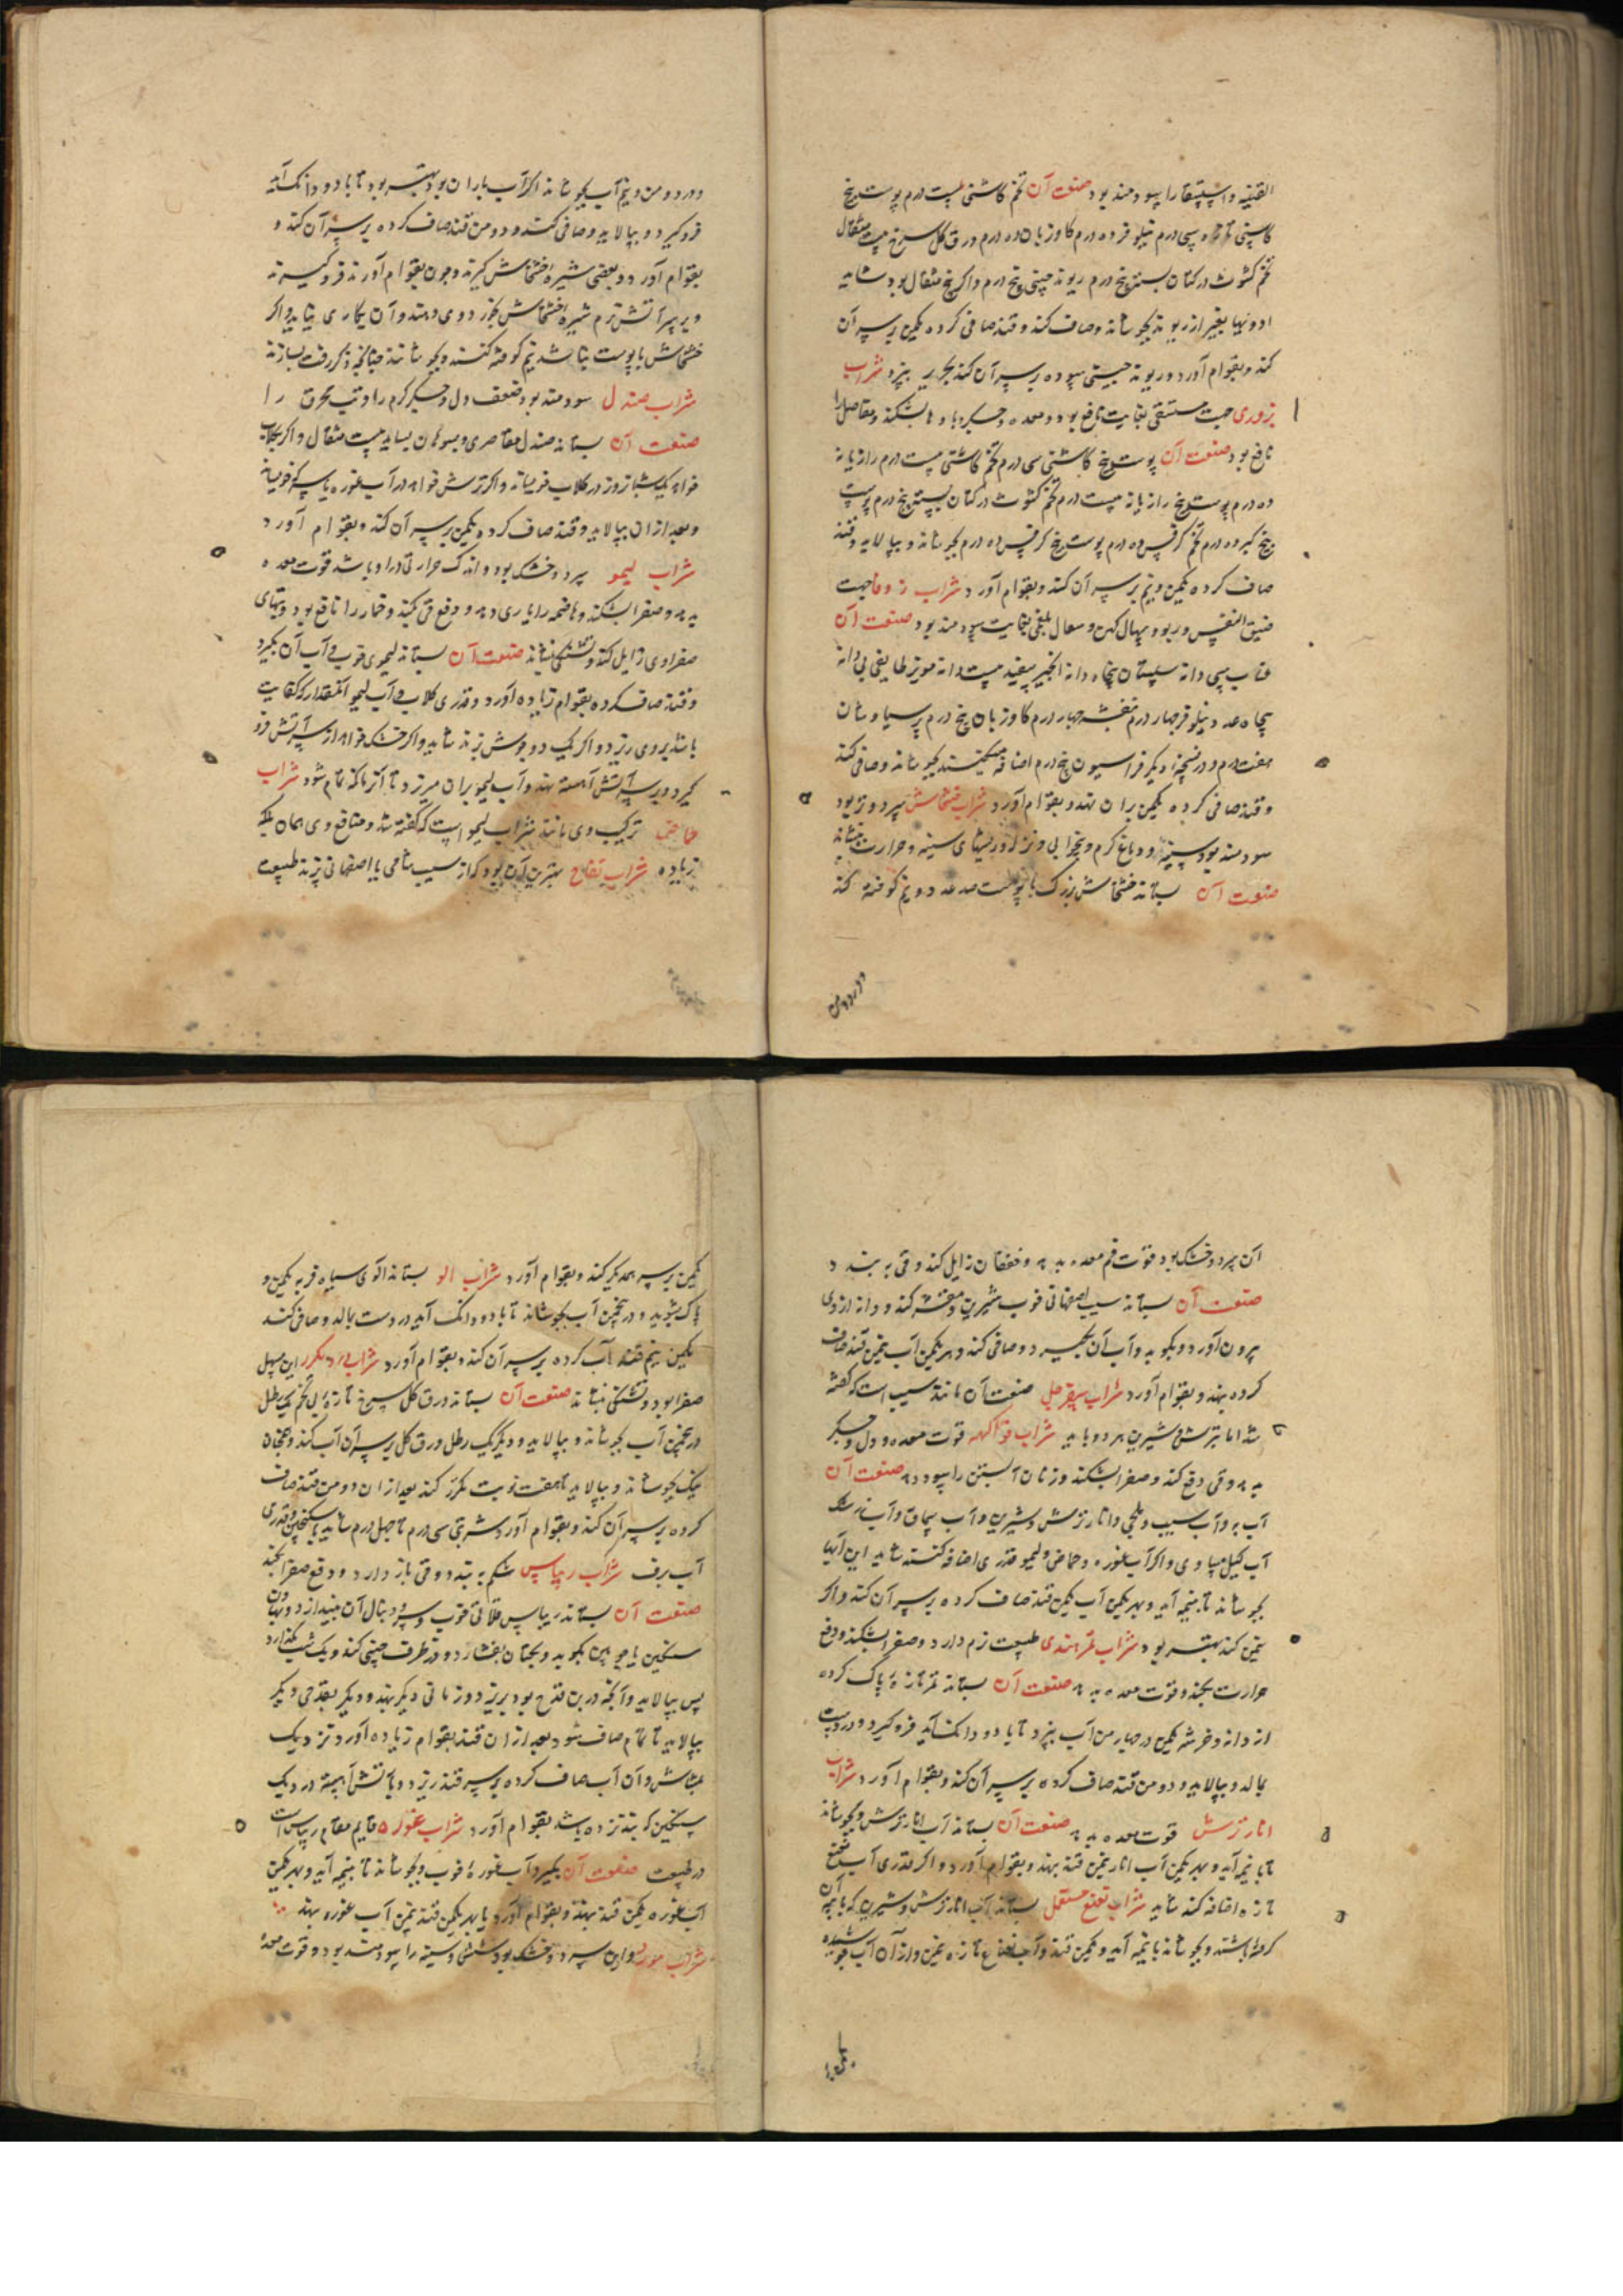 القنیه و استسقا را سودمند بود صنعت آن تخم کاشنی بیست درم پوست بیخ
کاسنی سی درم نیلوفر ده درم کاوزبان ده درم ورق کل سرخ بیست مثقال
تخم کشوث در کتان بسته پنج درم ریوند چینی پنج درم و اکر پنج مثقال بود شاید
ادویها بغیر از ریوند بجوشانند و صاف کند و قند صافی کرده یکمن بر سر آن
کند و بقوام آورد و ریوند چینی سوده بر سر آن کند بریزد شراب
بزوری جهت مستسقی بغایت نافع بود و معده و جکر و مفاصل را
نافع بود صنعت آن پوست بیخ کاشنی سی درم تخم کاشنی بیست درم رازیانه
ده درم پوست بیخ رازیانه بیست درم تخم کشوث در کتان بسته پنج درم پوست
بیخ کبر ده درم تخم کرفس ده درم پوست بیخ کرفس ده درم بجوشانند و بپالاید و قند
صاف کرده یکمن و نیم بر سر آن کند و بقوام آورد شراب زوفا جهت
ضیق النفس و ربو و سعال کهن و سعال بلغمی بغایت سودمند بود صنعت آن
عناب سی دانه سپستان پنجاه دانه انجیر سفید بیست دانه مویز طایفی بی دانه
پنجاه عدد نیلوفر چهار درم بنفشه چهار درم کاوزبان پنج درم پرسیاوشان
هفت درم و در نسخه دیکر فراسیون پنج درم اضافه میکنند بجوشانند و صافی کند
و قند صافی کرده یکمن بران نهد و بقوام آورد شراب خشخاش سرد و تر بود
سودمند بود سینه و دماغ کرم و بیخوابی و نزله و ریشهای سینه و حرارت بنشاند
صنعت آن بستانند خشخاش بزرک با پوست صد عدد و نیم کوفته کند
و در دو من و نیم آب بجوشانند اکر آب باران بود بهتر بود تا با دو دانک آید
فرو کیرد و بپالاید و صافی کنند و دو من قند صاف کرده بر سر آن کند و
بقوام آورد و بعضی شیره خشخاش کیرند و چون بقوام آورند فرو کیرند
و بر سر آتش نرم شیره خشخاش بخورد وی دهند و آن بکاری نیاید و اکر
خشخاش با پوست نباشد نیم کوفته کنند و بجوشانند چنانچه ذکر رفت بسازند
شراب صندل سودمند بود ضعف دل و جکر کرم را و تب محرق را
صنعت آن بستانند صندل مقاصری و بسوهان بساید بیست مثقال و اکر
خواهد یک شبانروز در کلاب خویساند و اکر ترش خواهد در آب غوره یا سرکه خویساند
و بعد از آن بپالاید و قند صاف کرده یکمن بر سر آن کند و بقوام آورد
شراب لیمو سرد و خشک بود و اندک حرارتی در او باشد قوت معده
بدهد و صفرا بشکند و هاضمه را یاری دهد و دفع قی بکند و خمار را نافع بود و تبهای
صفراوی زایل کند و تشنکی بنشاند صنعت آن بستانند لیموی خوب و آب آن بکیرد
و قند صاف کرده بقوام زیاده آورد و قدری کلاب و آب لیمو آنمقدار که کفایت
باشد بروی ریزد و اکر یک دو جوش بزند شاید و اکر خشک خواهد از سر آتش فرو
کیرد و بر سر آتش آهسته نهد و آب لیمو بران میریزد تا آنزمان که تمام شود شراب
حماض ترکیب وی مانند شراب لیمو است که کفته شد و منافع وی همان بلکه
زیاده شراب تفاح بهترین آن بود که از سیب شامی یا اصفهانی پزند طبیعت
آن سرد و خشک بود قوت فم معده بدهد و خفقان زایل کند و قی ببندد
صنعت آن بستانند سیب اصفهانی خوب شیرین و مقشر کند و دانه از وی
بیرون آورد و بکوبد و آب آن بکیرد و صافی کند و بهر یکمن آب نیمن قند صاف
کرده بنهد و بقوام آورد شراب سفرجل صنعت آن مانند سیب است که کفته
شد اما ترش و شیرین هر دو باید شراب فواکهه قوت معده و دل و جکر
بدهد و قی دفع کند و صفرا بشکند و زنان آبستن را سود دهد صنعت آن
آب به و آب سیب و بلخی و انار ترش و شیرین و آب سماق و آب زرشک
آب کیل مساوی و اکر آب غوره و حماض و لیمو قدری اضافه کنند شاید این آبها
بجوشانند تا نیمه آید و بهر یکمن آب یکمن قند صاف کرده بر سر آن کند و اکر
نیمن کند بهتر بود شراب تمر هندی طبیعت نرم دارد و صفرا بشکند و دفع
حرارت بکند و قوت معده بدهد صنعت آن بستانند تمر تازه پاک کرده
از دانه و خرشه یکمن در چهار من آب بپزد تا با دو دانک آید فرو کیرد و در دست
بمالد و بپالاید و دو من قند صاف کرده بر سر آن کند و بقوام آورد شراب
انار ترش قوت معده بدهد صنعت آن بستانند آب انار ترش و بجوشانند
تا با نیمه آید و بهر یکمن آب انار نیمن قند بنهد و بقوام آورد و اکر قدری آب نعنع
تازه اضافه کند شاید شراب نعنع مستعمل بستانند آب انار ترش و شیرین که با پیه آن
کرفته باشند و بجوشانند تا با نیمه آید و یکمن قند و آب نعناع تازه نیمن و از آن آب جوشیده
یکمن بر سر همدیکر کند و بقوام آورد شراب الو بستانند الوی سیاه فربه یکمن و
پاک بشوید و در پنجمن آب بجوشاند تا با دو دانک آید در دست بمالد و صافی کند
یکمن نیم قند آب کرده بر سر آن کند و بقوام آورد شراب ورد مکرر این مسهل
صفرا بود و تشنکی بنشاند صنعت آن بستانند ورق کل سرخ تازه بی تخم یک رطل
در پنجمن آب بجوشانند و بپالاید و دیکر یک رطل ورق کل بر سر آن آب کند و همچنان
نیک بجوشانند و بپالاید تا هفت نوبت مکرر کند بعد از آن دو من قند صاف
کرده بر سر آن کند و بقوام آورد شربتی سی درم تا چهل درم شاید با سکنجبین و قدری
آب برف شراب ریباس شکم ببندد و قی باز دارد و دفع صفرا بکند
صنعت آن بستانند ریباس خوب و سر و دنبال آن بیندازد و بهاون
سنکین یا چوبین بکوبد و بکتان بفشارد و در ظرف چینی کند و یک شب بکذارد
پس بپالاید و آنچه در بن قدح بود بریزد و زمانی دیکر بنهد و دیکر بقدحی دیکر
بپالاید تا تمام صاف شود بعد از آن قند بقوام زیاده آورد نزدیک
و آن آب صاف کرده بر سر قند ریزد و بآتش آهسته در دیک
سنکین که باشد بقوام آورد شراب غوره قایم مقام ریباس است
در طبیعت صنعت آن بکیرد آب غوره خوب و بجوشانند تا بنیمه آید و بهر یکمن
آب غوره یکمن قند بنهد و بقوام آورد یا بهر یکمن قند نیمن آب غوره بنهد
شراب مورد و این سرد و خشک بود شش و سینه را سودمند بود و قوت معده